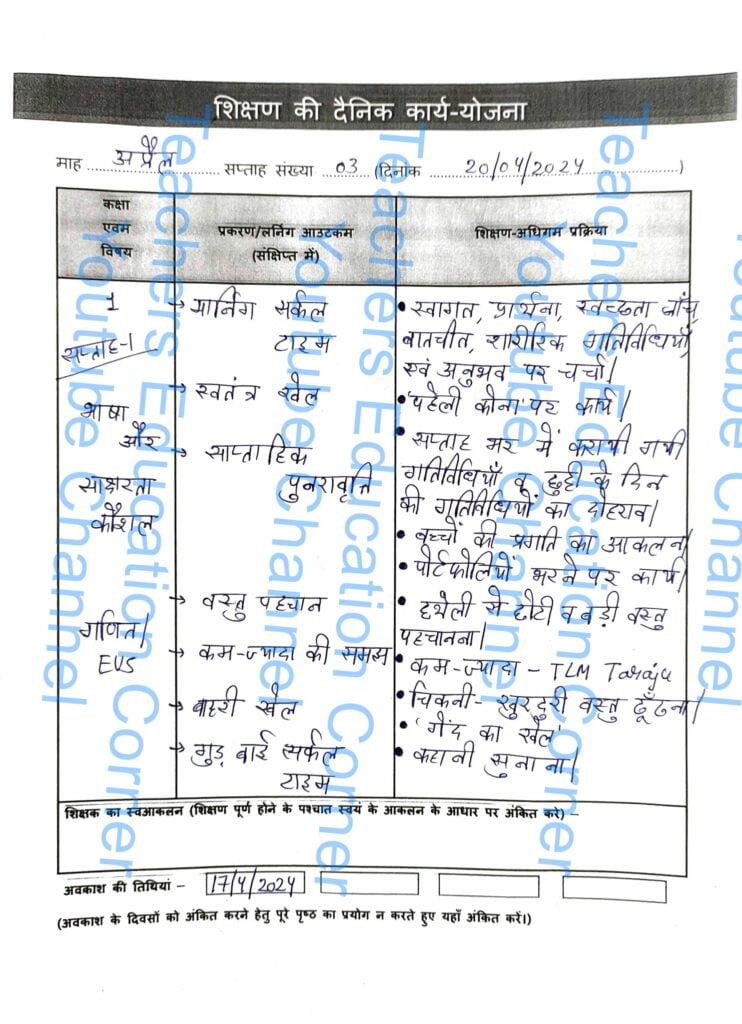 शिक्षण की दैनिक कार्य-योजना
माह अप्रैल सप्ताह संख्या 03 (दिनांक 20/04/2024)
कक्षा
एवम
विषय
प्रकरण/लर्निंग आउटकम
(संक्षिप्त में)
शिक्षण-अधिगम प्रक्रिया
1
सप्ताह-1
भाषा
और
साक्षरता
कौशल
गणित/
EVS
→ मार्निंग सर्कल
टाइम
→ स्वतंत्र खेल
→ साप्ताहिक
पुनरावृत्ति
→ वस्तु पहचान
→ कम-ज्यादा की समझ
→ बाहरी खेल
→ गुड बाई सर्कल
टाइम
• स्वागत, प्रार्थना, स्वच्छता जाँच,
बातचीत, शारीरिक गतिविधियाँ,
एवं अनुभव पर चर्चा।
• 'पहेली कोना' पर कार्य।
• सप्ताह भर में करायी गयी
गतिविधियाँ व छुट्टी के दिन
की गतिविधियों का दोहराव।
• बच्चों की प्रगति का आकलन।
• पोर्टफोलियो भरने पर कार्य।
• हथेली से छोटी व बड़ी वस्तु
पहचानना।
• कम-ज्यादा - TLM Taraju
• चिकनी- खुरदुरी वस्तु ढूँढना।
• 'गेंद का खेल'
• कहानी सुनाना।
शिक्षक का स्वआकलन (शिक्षण पूर्ण होने के पश्चात स्वयं के आकलन के आधार पर अंकित करे) –
अवकाश की तिथियां – 17/4/2024
(अवकाश के दिवसों को अंकित करने हेतु पूरे पृष्ठ का प्रयोग न करते हुए यहाँ अंकित करें।)
Teachers Education Corner
Youtube Channel
Teachers Education Corner
Youtube Channel
Teachers Education Corner
Youtube Channel
Youtube Channel